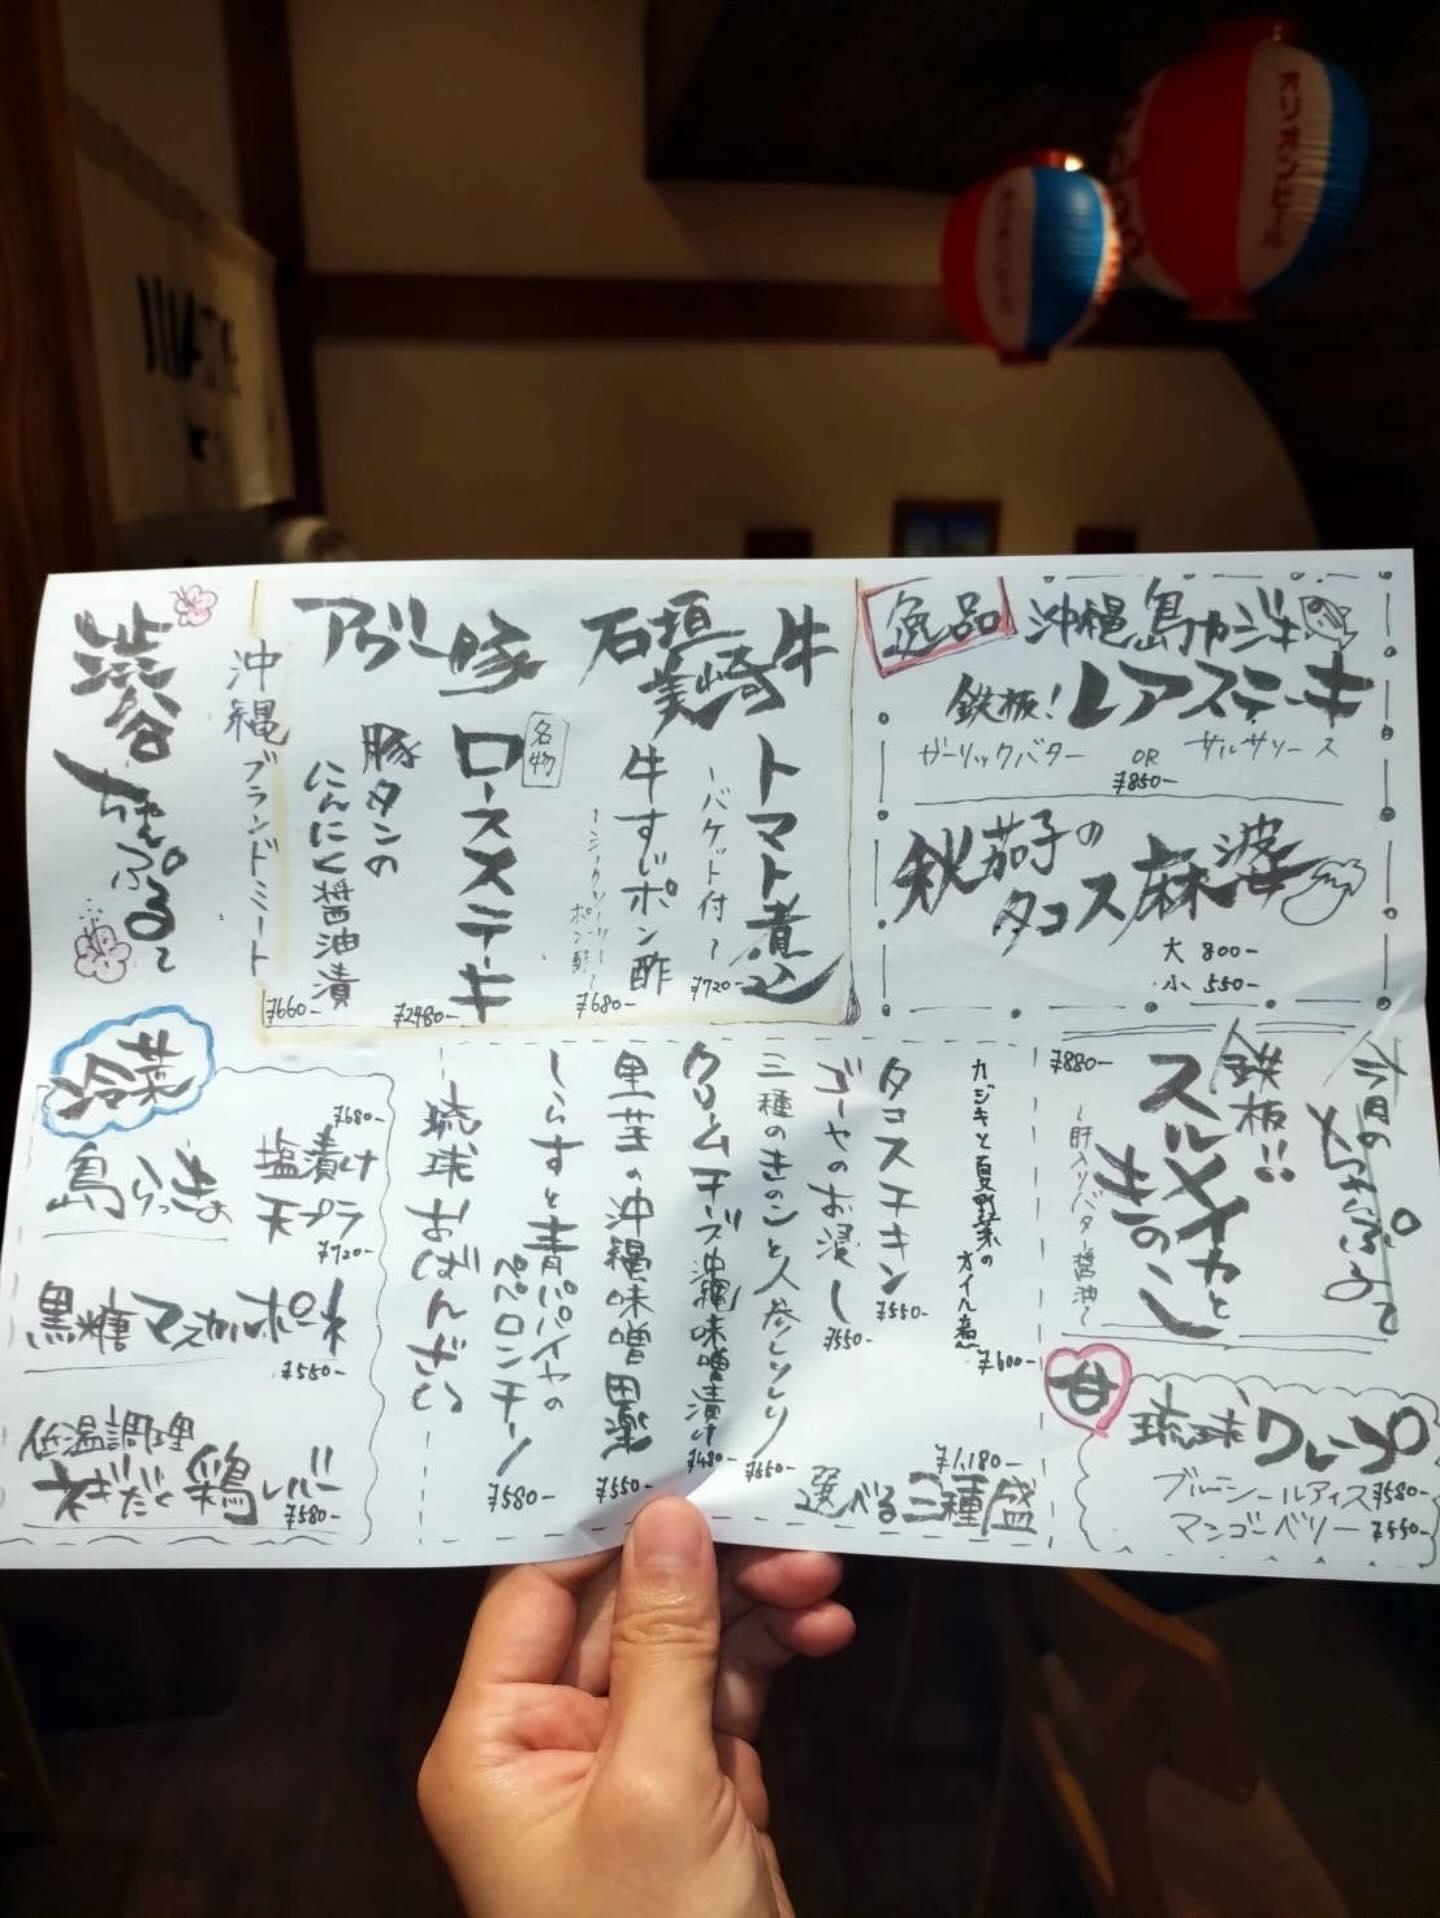 オリオンビール
逸品
沖縄島カジキ
鉄板!レアステーキ
ガーリックバター OR サルサソース
¥850-
秋茄子の
タコス麻婆
大 800-
小 550-
石垣
美崎牛
トマト煮込
~バケット付~
¥720-
牛すじポン酢
~シークワーサーポン酢~
¥680-
アグー豚
名物
ロースステーキ
¥2480-
豚タンの
にんにく醤油漬
¥660-
沖縄ブランドミート
渋谷
ちゃんぷるて
鉄板!!
スルメイカと
きのこ
~肝入りバター醤油~
¥880-
甘
琉球クレープ
ブルーシールアイス ¥580-
マンゴーベリー ¥550-
カジキと夏野菜の
オイル煮
¥600-
タコスチキン
¥550-
ゴーヤのお浸し
¥550-
三種のきのこと人参しりしり
¥550-
クリームチーズ沖縄味噌漬け
¥480-
里芋の沖縄味噌田楽
¥550-
しらすと青パパイヤの
ペペロンチーノ
¥580-
琉球おばんざい
選べる三種盛
¥1,180-
冷菜
島らっきょ
塩漬け
¥680-
天プラ
¥720-
黒糖マスカルポーネ
¥550-
低温調理
ネギだく鶏レバー
¥580-